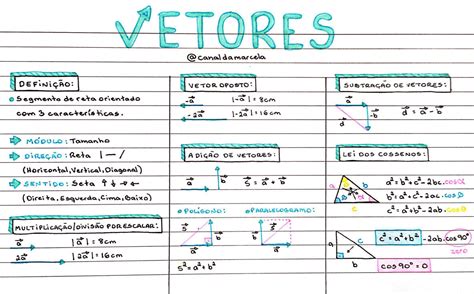 VETORES
@canaldamarcela
DEFINIÇÃO:
Segmento de reta orientado
com 3 características.
MÓDULO: Tamanho
DIREÇÃO: Reta | — /
(Horizontal, Vertical, Diagonal)
SENTIDO: Seta ↑ ↓ ← →
(Direita, Esquerda, Cima, Baixo)
MULTIPLICAÇÃO/DIVISÃO POR ESCALAR:
a⃗ |a⃗| = 8cm
2a⃗ |2a⃗| = 16cm
VETOR OPOSTO:
-a⃗ |-a⃗| = 8cm
-2a⃗ |-2a⃗| = 16cm
ADIÇÃO DE VETORES:
a⃗ b⃗ S⃗ = a⃗ + b⃗
POLÍGONO: PARALELOGRAMO:
S² = a² + b²
SUBTRAÇÃO DE VETORES:
a⃗ -b⃗ d⃗ d⃗ = a⃗ - b⃗
LEI DOS COSSENOS:
a² = b² + c² - 2bc.cosα
b² = a² + c² - 2ac.cosβ
c² = a² + b² - 2ab.cosθ
a c b
c² = a² + b² - 2ab.cos90°
zero
cos90° = 0